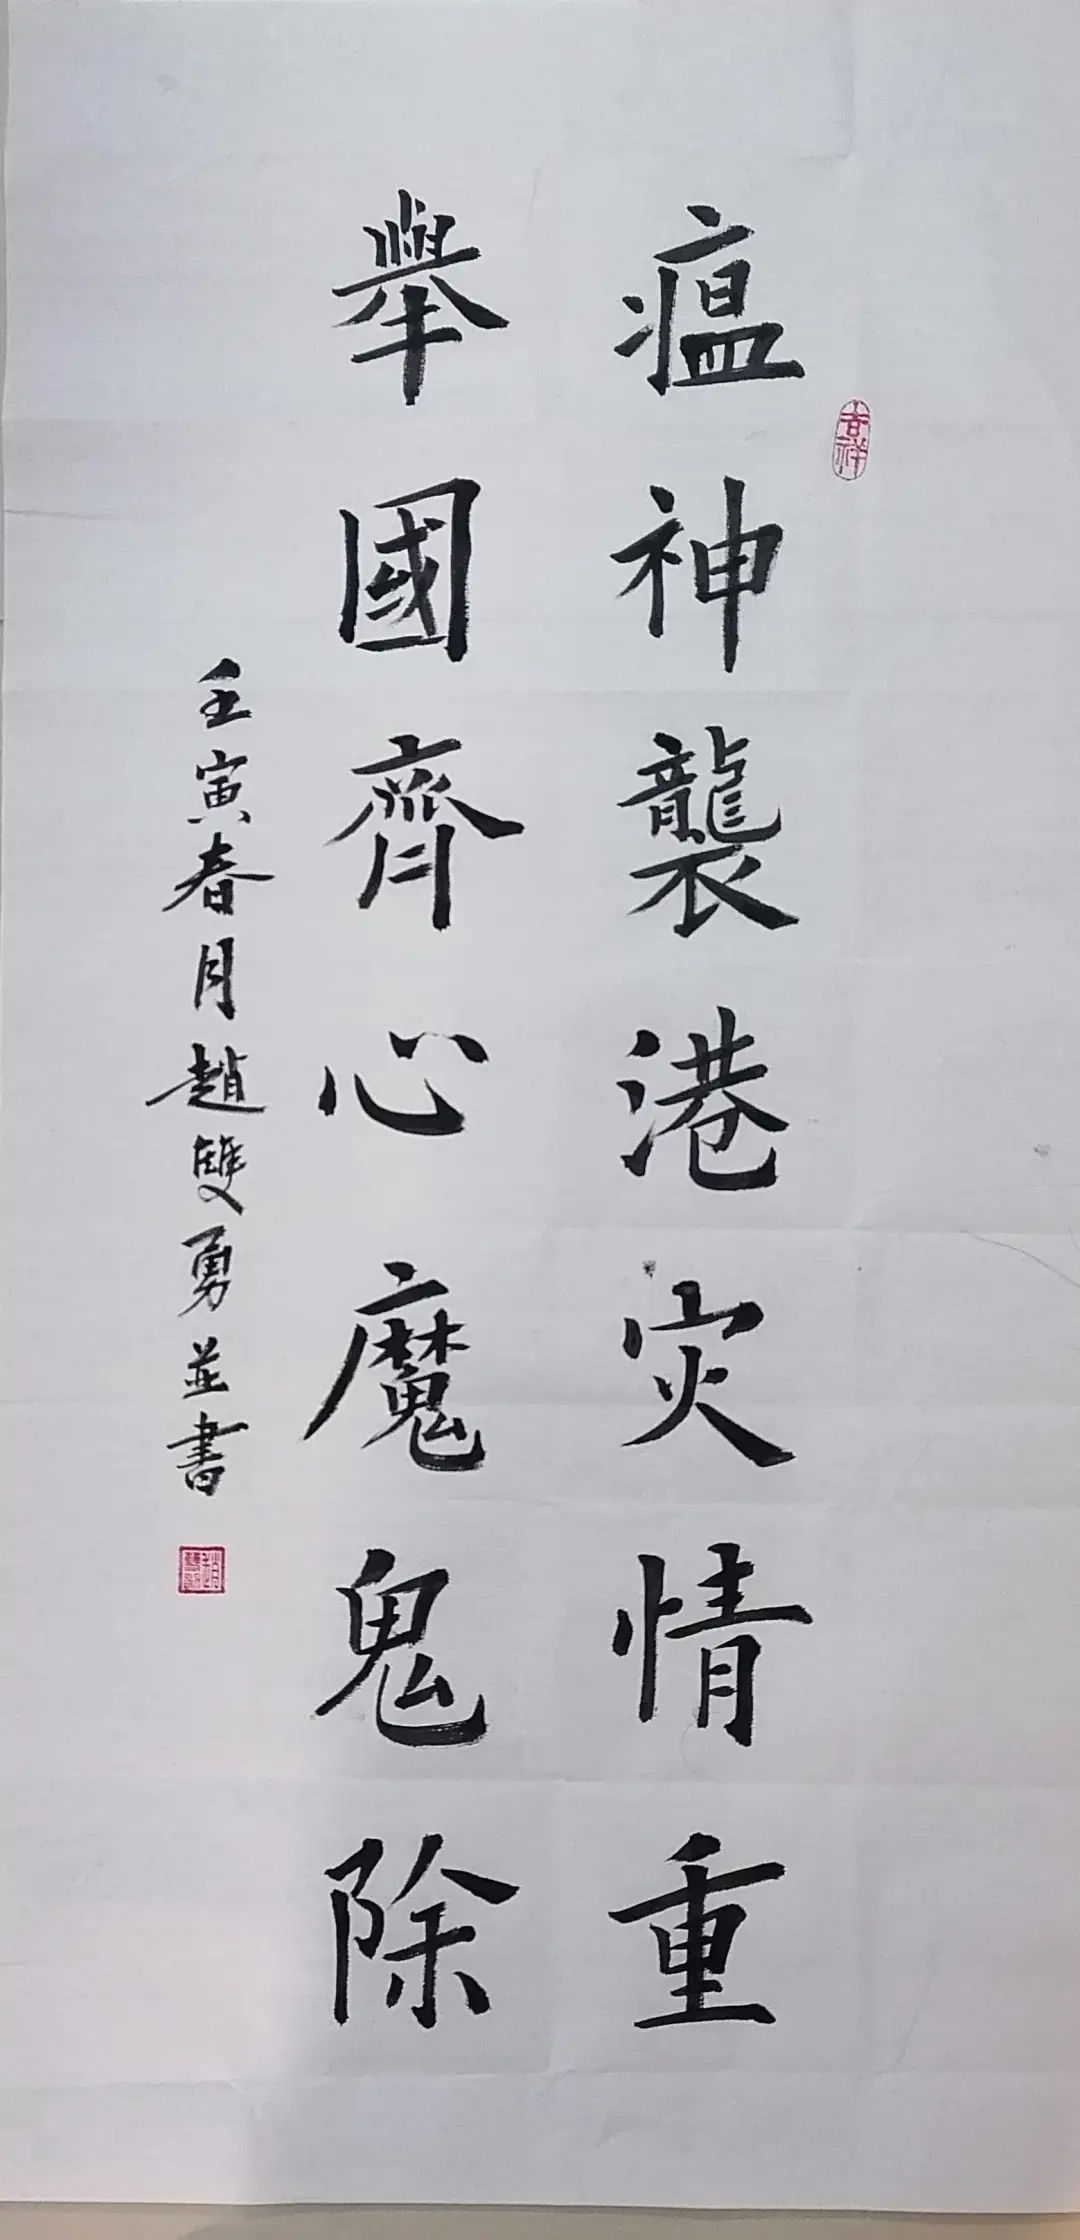 瘟神襲港灾情重
舉國齊心魔鬼除
壬寅春月趙雙勇並書
吉祥